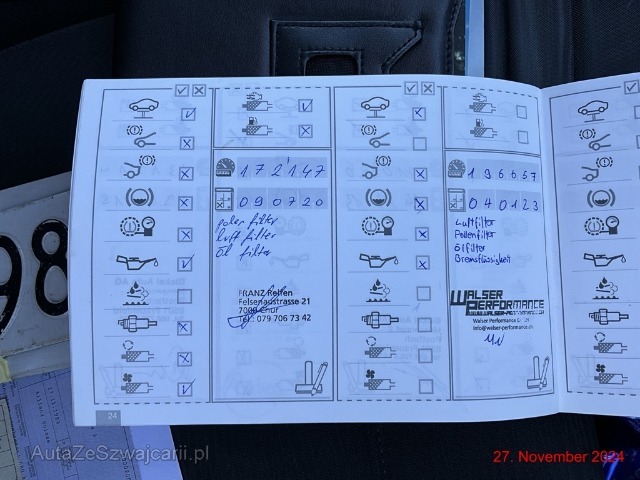 172'147
090720
polen filter
luft filter
öl filter
FRANZ Reifen
Felsenaustrasse 21
7000 Chur
Tel.: 079 706 73 42
24
196657
040123
Luftfilter
Pollenfilter
Ölfilter
Bremsflüssigkeit
WALSER
PERFORMANCE
WWW.WALSER-PERFORMANCE.CH
Walser Performance GmbH
info@walser-performance.ch
98
AutaZeSzwajcarii.pl
27. November 2024